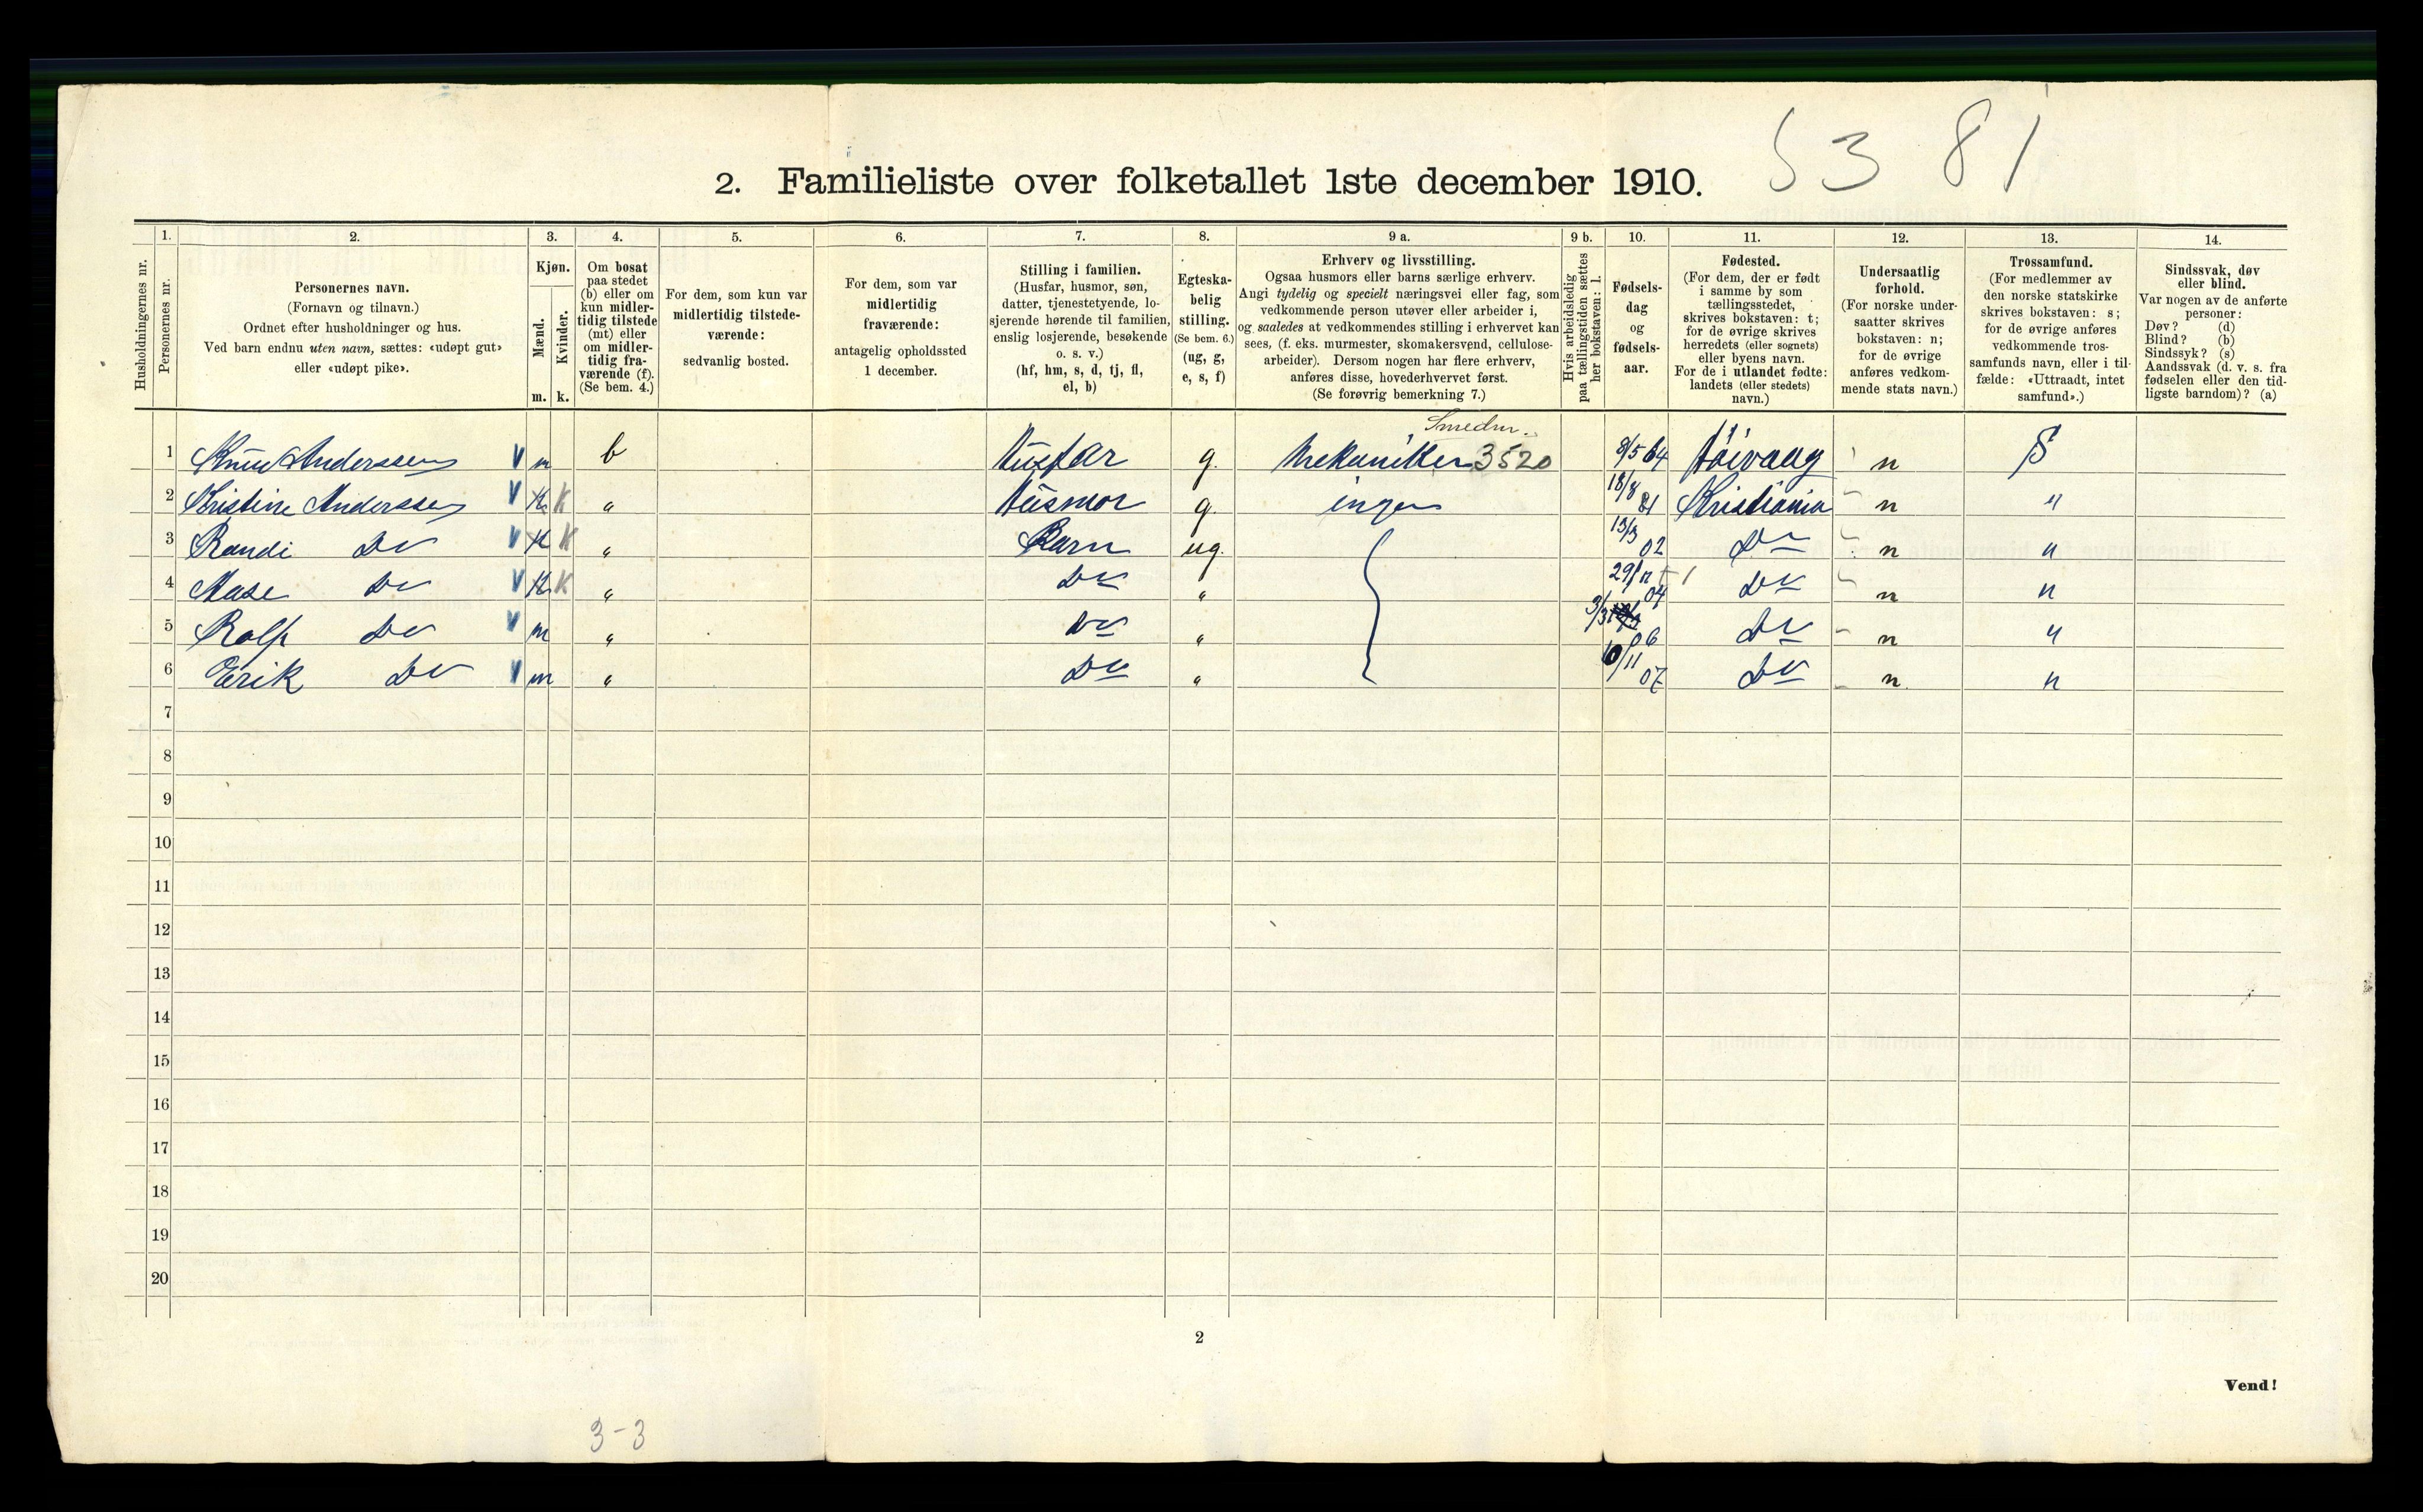 S3 81
2. Familieliste over folketallet 1ste december 1910.
Husholdningernes nr.
1. Personernes nr.
2. Personernes navn.
(Fornavn og tilnavn.)
Ordnet efter husholdninger og hus.
Ved barn endnu uten navn, sættes: «udøpt gut»
eller «udøpt pike».
3. Kjøn.
Mænd. Kvinder.
m. k.
4. Om bosat
paa stedet
(b) eller om
kun midler-
tidig tilstede
(mt) eller
om midler-
tidig fra-
værende (f).
(Se bem. 4.)
5. For dem, som kun var
midlertidig tilstede-
værende:
sedvanlig bosted.
6. For dem, som var
midlertidig
fraværende:
antagelig opholdssted
1 december.
7. Stilling i familien.
(Husfar, husmor, søn,
datter, tjenestetyende, lo-
sjerende hørende til familien,
enslig losjerende, besøkende
o. s. v.)
(hf, hm, s, d, tj, fl,
el, b)
8. Egteska-
belig
stilling.
(Se bem. 6.)
(ug, g,
e, s, f)
9 a. Erhverv og livsstilling.
Ogsaa husmors eller barns særlige erhverv.
Angi tydelig og specielt næringsvei eller fag, som
vedkommende person utøver eller arbeider i,
og saaledes at vedkommendes stilling i erhvervet kan
sees, (f. eks. murmester, skomakersvend, cellulose-
arbeider). Dersom nogen har flere erhverv,
anføres disse, hovederhvervet først.
(Se forøvrig bemerkning 7.)
9 b. Hvis arbeidsledig
paa tællingstiden sættes
her bokstaven: l.
10. Fødsels-
dag
og
fødsels-
aar.
11. Fødested.
(For dem, der er født
i samme by som
tællingsstedet,
skrives bokstaven: t;
for de øvrige skrives
herredets (eller sognets)
eller byens navn.
For de i utlandet fødte:
landets (eller stedets)
navn.)
12. Undersaatlig
forhold.
(For norske under-
saatter skrives
bokstaven: n;
for de øvrige
anføres vedkom-
mende stats navn.)
13. Trossamfund.
(For medlemmer av
den norske statskirke
skrives bokstaven: s;
for de øvrige anføres
vedkommende tros-
samfunds navn, eller i til-
fælde: «Uttraadt, intet
samfund».)
14. Sindssvak, døv
eller blind.
Var nogen av de anførte
personer:
Døv? (d)
Blind? (b)
Sindssyk? (s)
Aandssvak (d. v. s. fra
fødselen eller den tid-
ligste barndom)? (a)
1 Knud Anderssen V m b Husfar g. Mekaniker 3520 9/5 64 Höivaag n S
2 Kristine Anderssen V K k " Husmor g. ingen 18/8 81 Kristiania n "
3 Randi Do V K k " Barn ug. 13/3 02 Do n "
4 Aase Do V K k " Do " 29/11 04 Do n "
5 Rolf Do V m " Do " 3/3 06 Do n "
6 Erik Do V m " Do " 10/11 07 Do n. "
7
8
9
10
11
12
13
14
15
16
17
18
19
20
2
Vend!
3-3